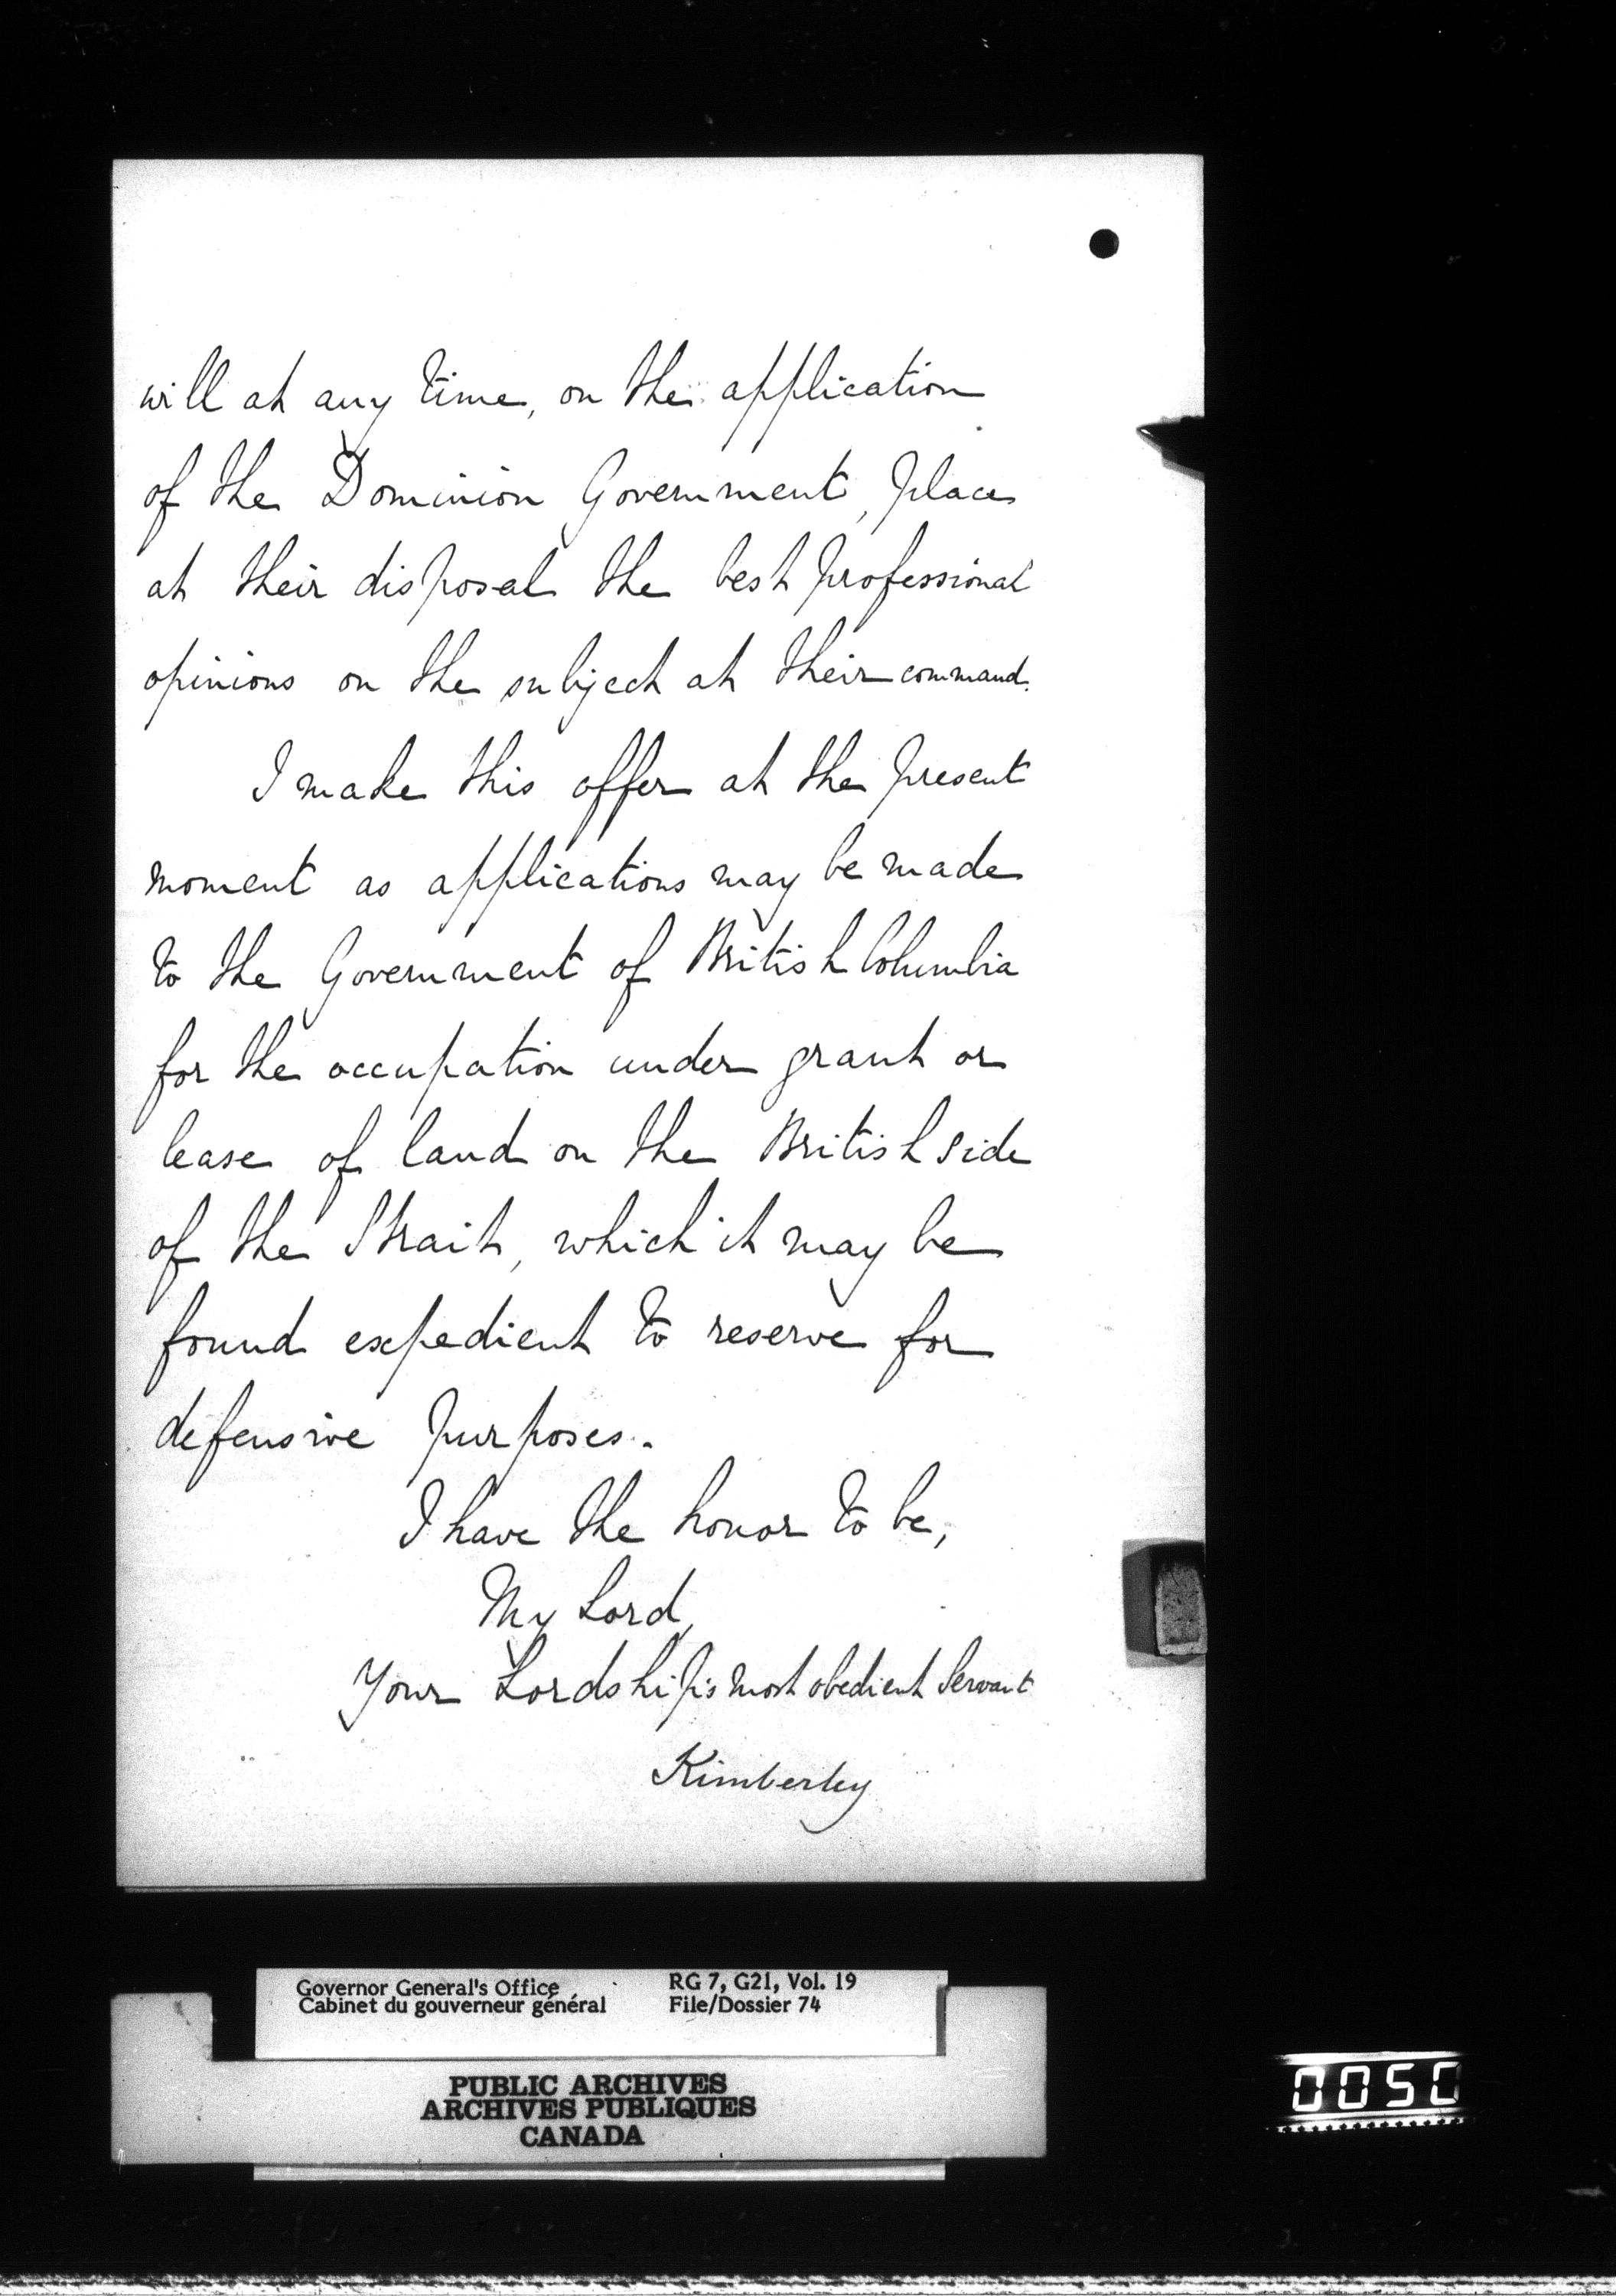 will at any time, on the application
of the Dominion Government, place
at their disposal the best professional
opinions on the subject at their command.
I make this offer at the present
moment as applications may be made
to the Government of British Columbia
for the occupation under grant or
lease of land on the British side
of the Strait, which it may be
found expedient to reserve for
defensive purposes.
I have the honor to be,
My Lord,
Your Lordship's most obedient Servant
Kimberley
Governor General's Office RG 7, G21, Vol. 19
Cabinet du gouverneur général File/Dossier 74
PUBLIC ARCHIVES
ARCHIVES PUBLIQUES
CANADA
0050